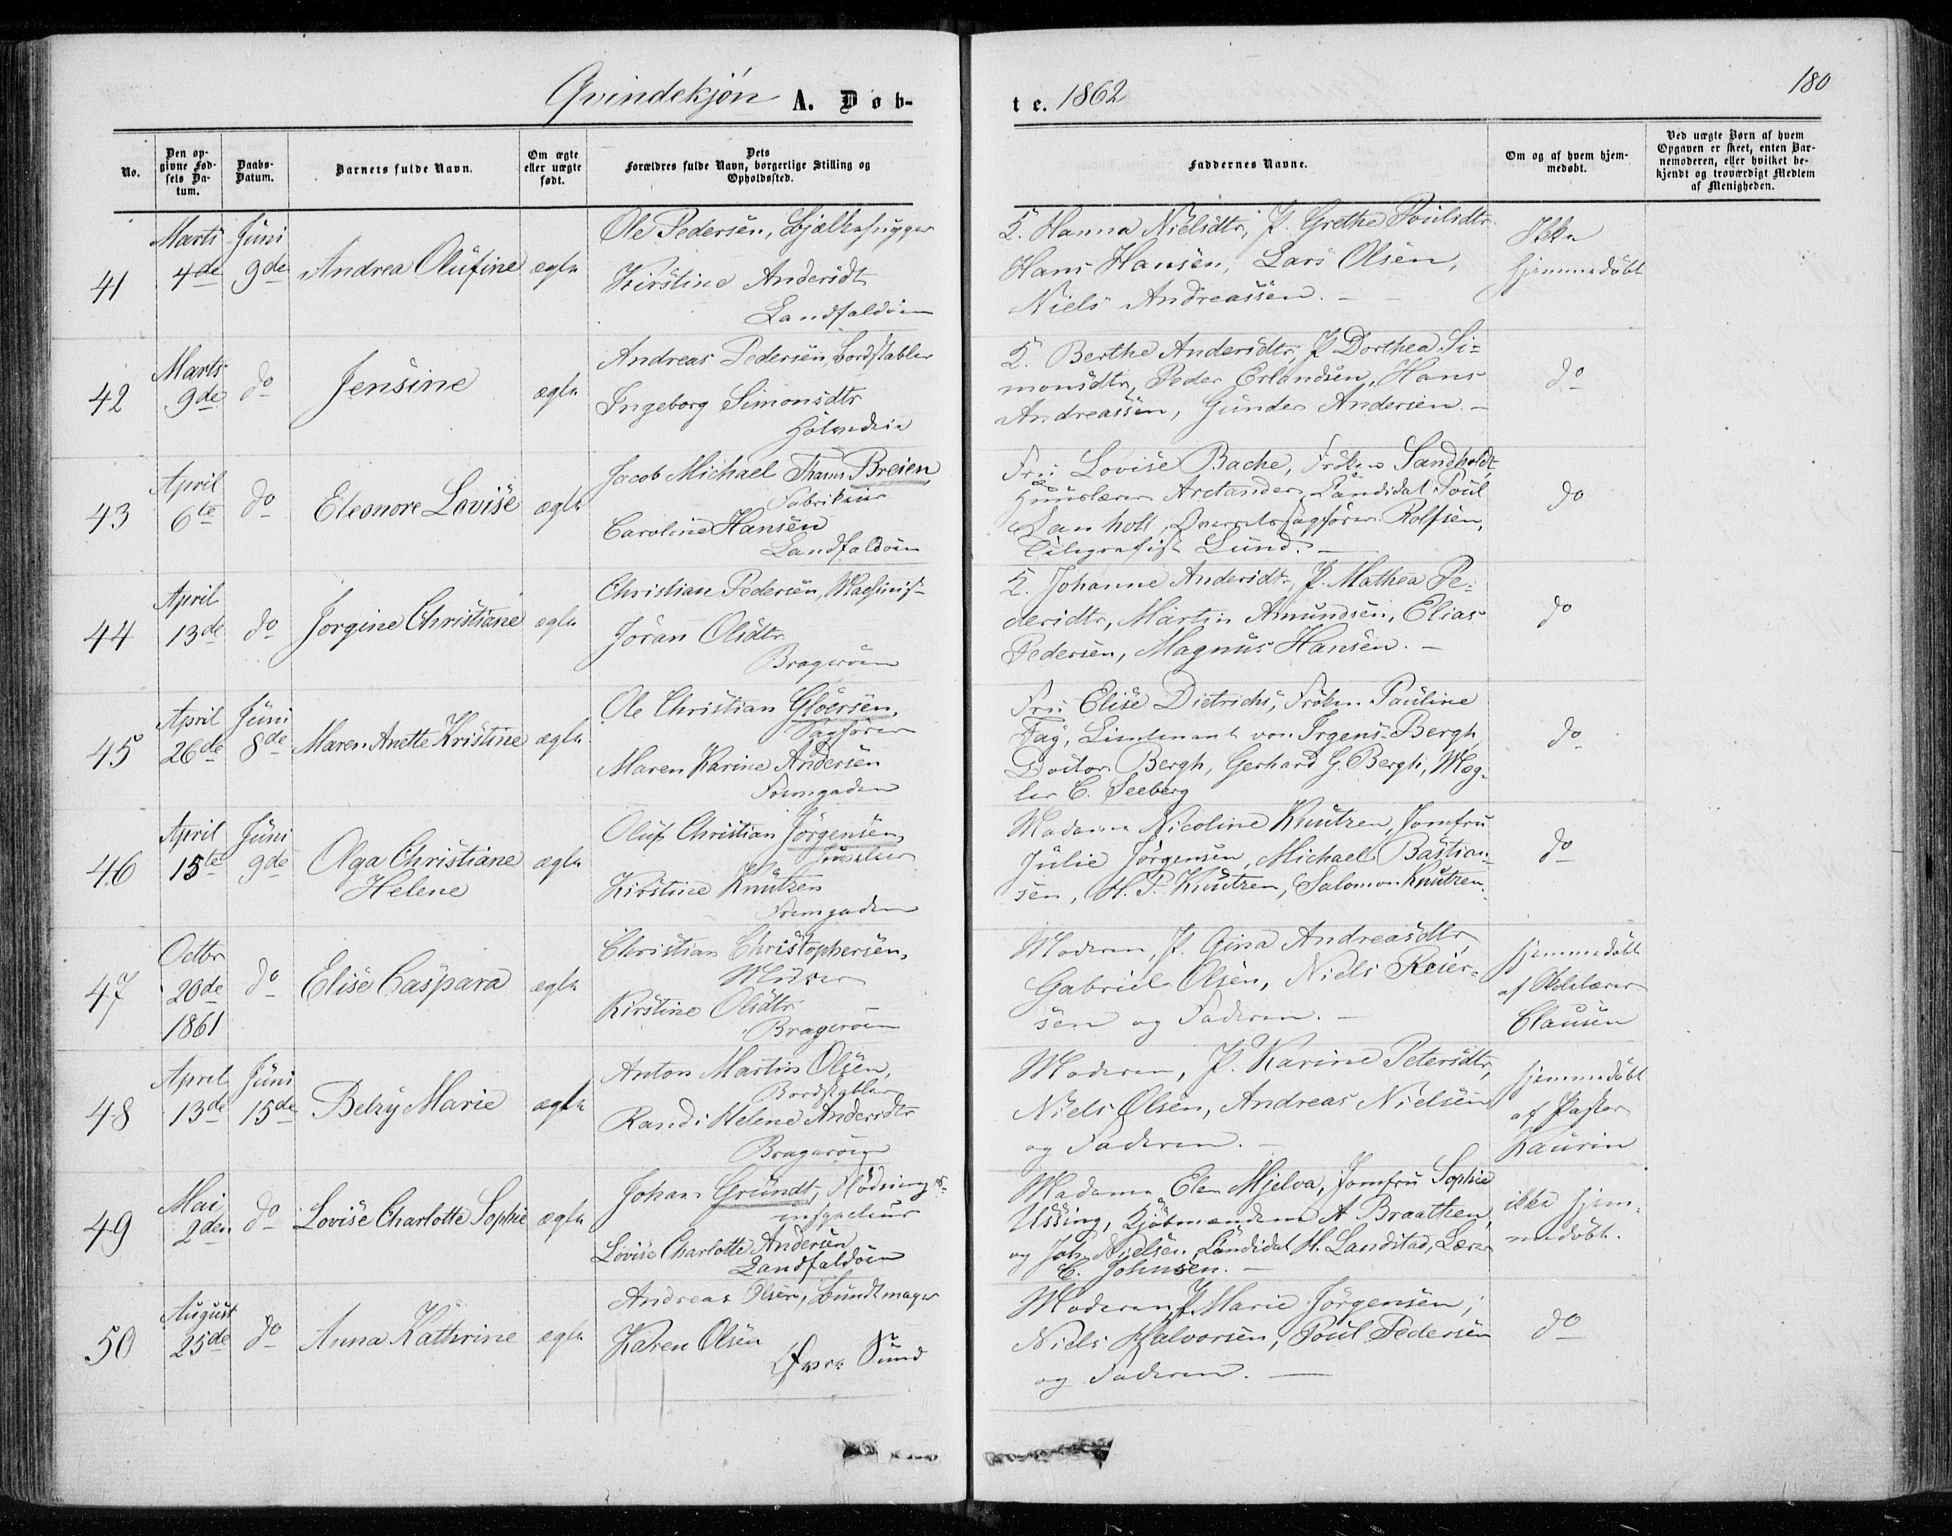 Qvindekjøn A. Døb-
te. 1862
180
No.
Den op-
givne Fød-
sels Da-
tum.
Daabs-
Datum.
Barnets fulde Navn.
Om ægte
eller uægte
født.
Dets
Forældres fulde Navn, borgerlige Stilling og
Opholdssted.
Faddernes Navne.
Om og af hvem hjem-
medøbt.
Ved uægte Børn af hvem
Opgaven er skeet, enten Bar-
nemoderen, eller hvilket be-
kjendt og troværdigt Medlem
af Menigheden.
41
Marts
4de
Juni
9de
Andrea Olufine
ægte
Ole Pedersen, Bjælkehugger
Kirstine Andersdt
Landfaldøen
K. Hanna Nielsdtr, P. Grethe Poulsdtr
Hans Hansen, Lars Olsen,
Niels Andreassen. –
Ikke
hjemmedøbt
42
Marts
9de
do
Jensine
ægte
Andreas Pedersen, Bordstabler
Ingeborg Simonsdtr
K. Berthe Andersdtr, P. Dorthea Si=
monsdtr, Peder Erlandsen, Hans
Andreassen, Gunder Andersen. –
do
43
April
6te
do
Eleonore Lovise
ægte
Jacob Michael Thams Breien
Fabrikeur
Caroline Hansen
Landfaldøen
Fru Lovise Bache, Frøken Sandholdt
Huuslærer Arctander, Candidat Poul
Sanholt, Overretssagfører Rolfsen,
Telegrafist Lund. –
do
44
April
13de
do
Jorgine Christiane
ægte
Christian Pedersen, Maskinist
Jöran Olsdtr
Bragerøen
K. Johanne Andersdtr, P. Mathea Pe-
dersdtr, Martin Amundsen, Elias
Pedersen, Magnus Hansen. –
do
45
April
26de
Juni
8de
Maren Anette Kristine
ægte
Ole Christian Gløersen,
Sagfører
Maren Karine Andersen
Fremgaden
Fru Elise Dietrichs, Frøken Pauline
Fag, Lieutenant von Irgens-Bergh,
Doctor Bergh, Gerhard G. Bergh, Mæg-
ler C. Seeberg
do
46
April
15te
Juni
9de
Olga Christiane
Helene
ægte
Oluf Christian Jørgensen,
Juveleer
Kirstine Knutzen
Fremgaden
Madame Nicoline Knutzen, Jomfru
Julie Jørgensen, Michael Bastian-
sen, H. P. Knutzen, Salomon Knutzen.
do
47
Octbr
20de
1861
do
Elise Caspara
ægte
Christian Christophersen,
Murer
Kirstine Olsdtr
Bragerøen
Moderen, P. Gina Andreasdtr,
Gabriel Olsen, Niels Reier-
sen og Faderen. –
hjemmedøbt
af Skolelærer
Clausen
48
April
13de
Juni
15de
Betzy Marie
ægte
Anton Martin Olsen,
Bordstabler
Randi Helene Andersdtr
Bragerøen
Moderen, P. Karine Petersdtr,
Niels Olsen, Andreas Nielsen
og Faderen. –
hjemmedøbt
af Pastor
Kaurin
49
Mai
2den
do
Lovise Charlotte Sophie
ægte
Johan Grundt, Flødnings-
inspecteur
Lovise Charlotte Andersen
Landfaldøen
Madame Elen Mjelva, Jomfru Sophie
Ussing, Kjøbmændene A Braathen,
og Joh. Nielsen, Candidat H. Landstad, Lærer
C. Johnsen. –
ikke hjem-
medøbt.
50
August
25de
do
Anna Kathrine
ægte
Andreas Olsen, Bundtmager
Karen Olsen
Øvre Sund
Moderen, P. Marie Jørgensen,
Niels Halvorsen, Poul Pedersen
og Faderen. –
do